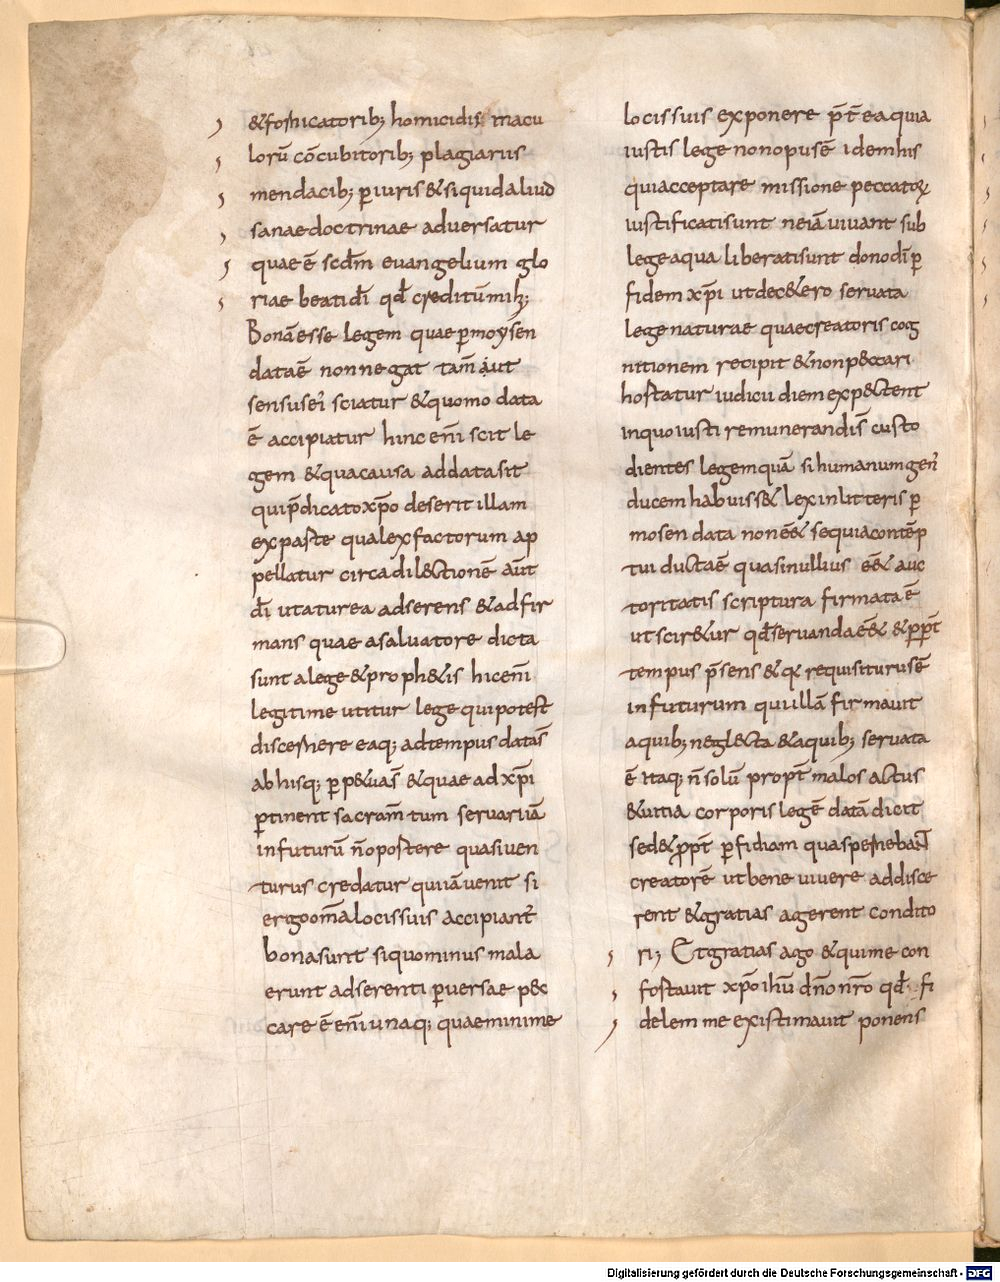 &fornicatorib; homicidis macu
lorū cōcubitorib; plagiarus
mendacib; p̄iuris & siquidaliud
sanae doctrinae adversatur
quae ē scdm̄ evangelium glo
riae beati dī qd̄ creditū mih;
Bonā esse legem quae p̄ moysen
data ē non negat tam̄ aut
sensus eī sciatur & quomodata
ē accipiatur hinc enī scit le
gem & qua causa addata sit
qui p̄dicato xp̄o deserit illam
ex paste qua lex factorum ap
pellatur circa dil&tionē aūt
dī utatur ea adserens & adfir
mans quae a salvatore dicta
sunt a lege & proph&is hic enī
legitime utitur lege qui potest
discernere eaq; ad tempus datas̄
ab hisq; p̄p&uas̄ & quae ad xp̄i
p̄tinent sacram̄tum servari iā
in futurū n̄ postere quasi ven
turus credatur qui iā venit si
ergo om̄a locis suis accipiant̄
bona sunt siquominus mala
erunt adserenti p̄versae pec
care ē enī unaq; quae minime
locis suis exponere p̄t̄ ea quia
iustis lege non opus ē idem his
qui acceptare missione peccator̄
iustificati sunt ne iā vivant sub
lege a qua liberati sunt dono dī p̄
fidem xp̄i ut de c&ero servata
lege naturae quae creatoris cog
nitionem recipit & non peccari
hostatur iudicii diem exp&tent
in quo iusti remunerandi s̄ custo
dientes legem quā si humanum gen̄
ducem habuiss& lex in litteris p̄
mosen data non ēē& sequia contēp
tui ducta ē quasi nullius ēē& auc
toritatis scriptura firmata ē
ut scir&ur qd̄ servanda ēē& & p̄pt̄
tempus p̄sens & q requisiturus ē
in futurum qui illā firmavit
a quib; negl&ta & a quib; servata
ē Itaq; n̄ solū propt̄ malos actus
& vitia corporis legē datā dicit
sed & p̄pt̄ p̄fidiam qua spernebant
creatorē ut bene vivere addisce
rent & gratias agerent condito
ri; Et gratias ago & qui me con
fostavit xp̄o ihū dn̄o nr̄o qd̄ fi
delem me existimavit ponens
Digitalisierung gefördert durch die Deutsche Forschungsgemeinschaft - DFG